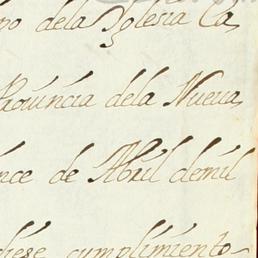 no dela Yglesia Ca
Prouincia dela Nueua
nce de Abril demil
diese cumplimiento